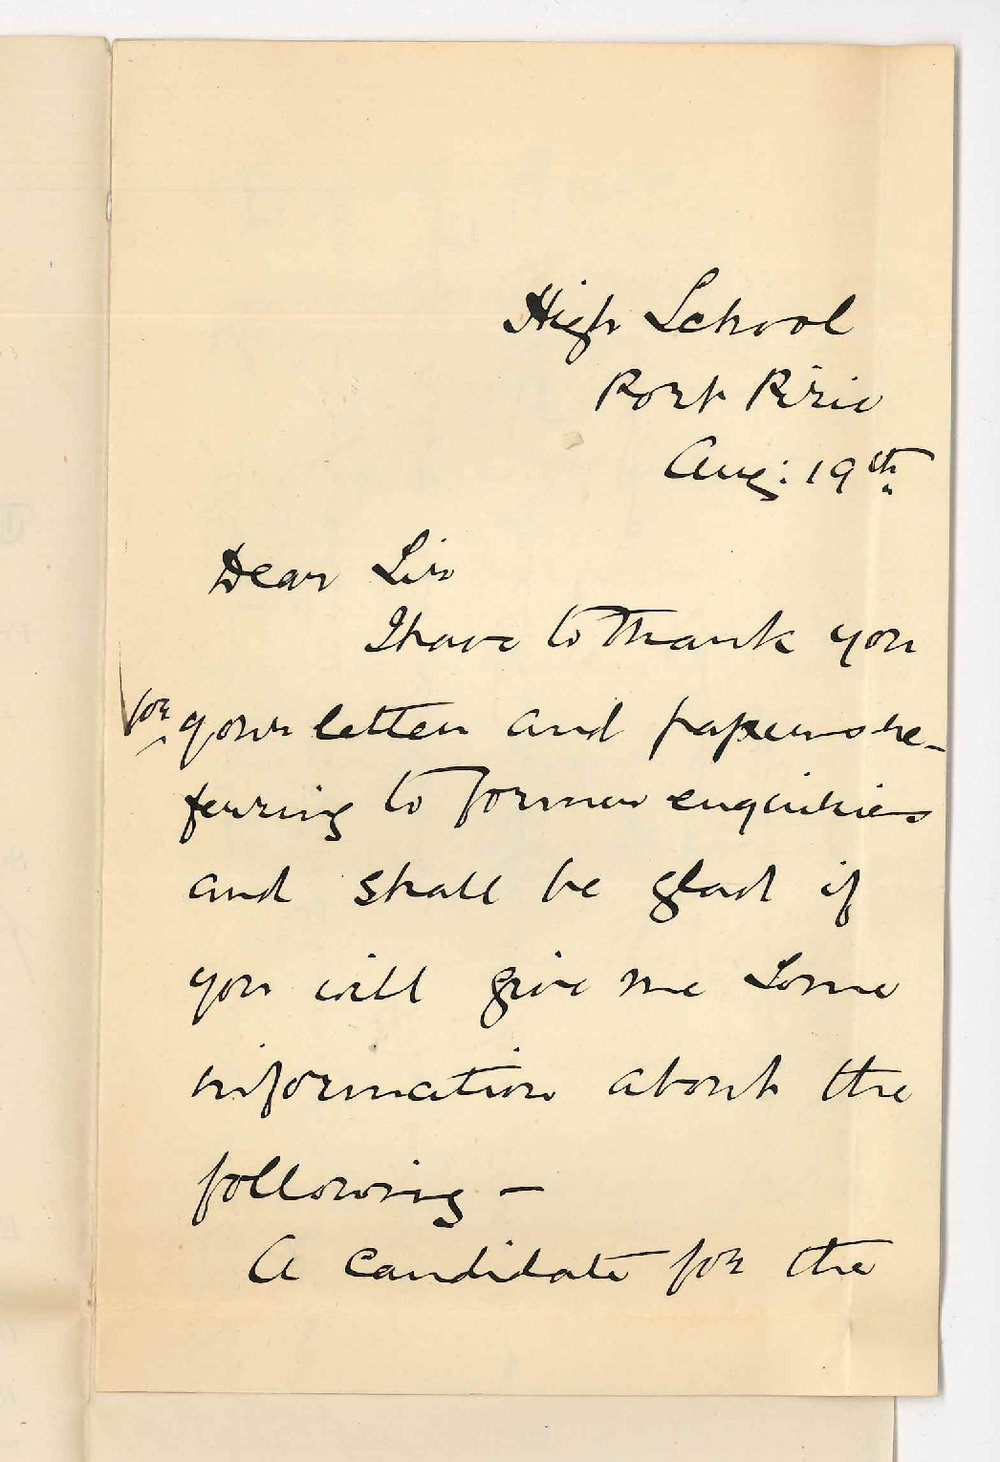 High School
Port Pirie
Aug: 19th
Dear Sir
I have to thank you
for your letter and papers re-
ferring to former enquiries
and shall be glad if
you will give me some
information about the
following —
A candidate for the